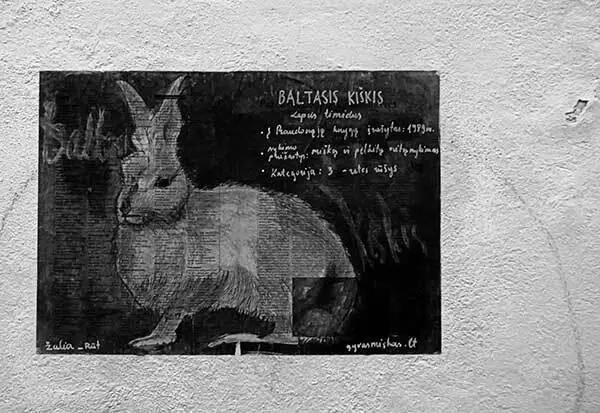 BALTASIS KIŠKIS
Lepus timidus
• Į Raudonąją knygą įrašytas: 1989m.
nykimo
priežastys: miškų ir pelkių plotų nykimas
• Kategorija: 3 - retos rūšys
Baltas
Kiškis
žalia_rūt
gyvasmiskas.lt